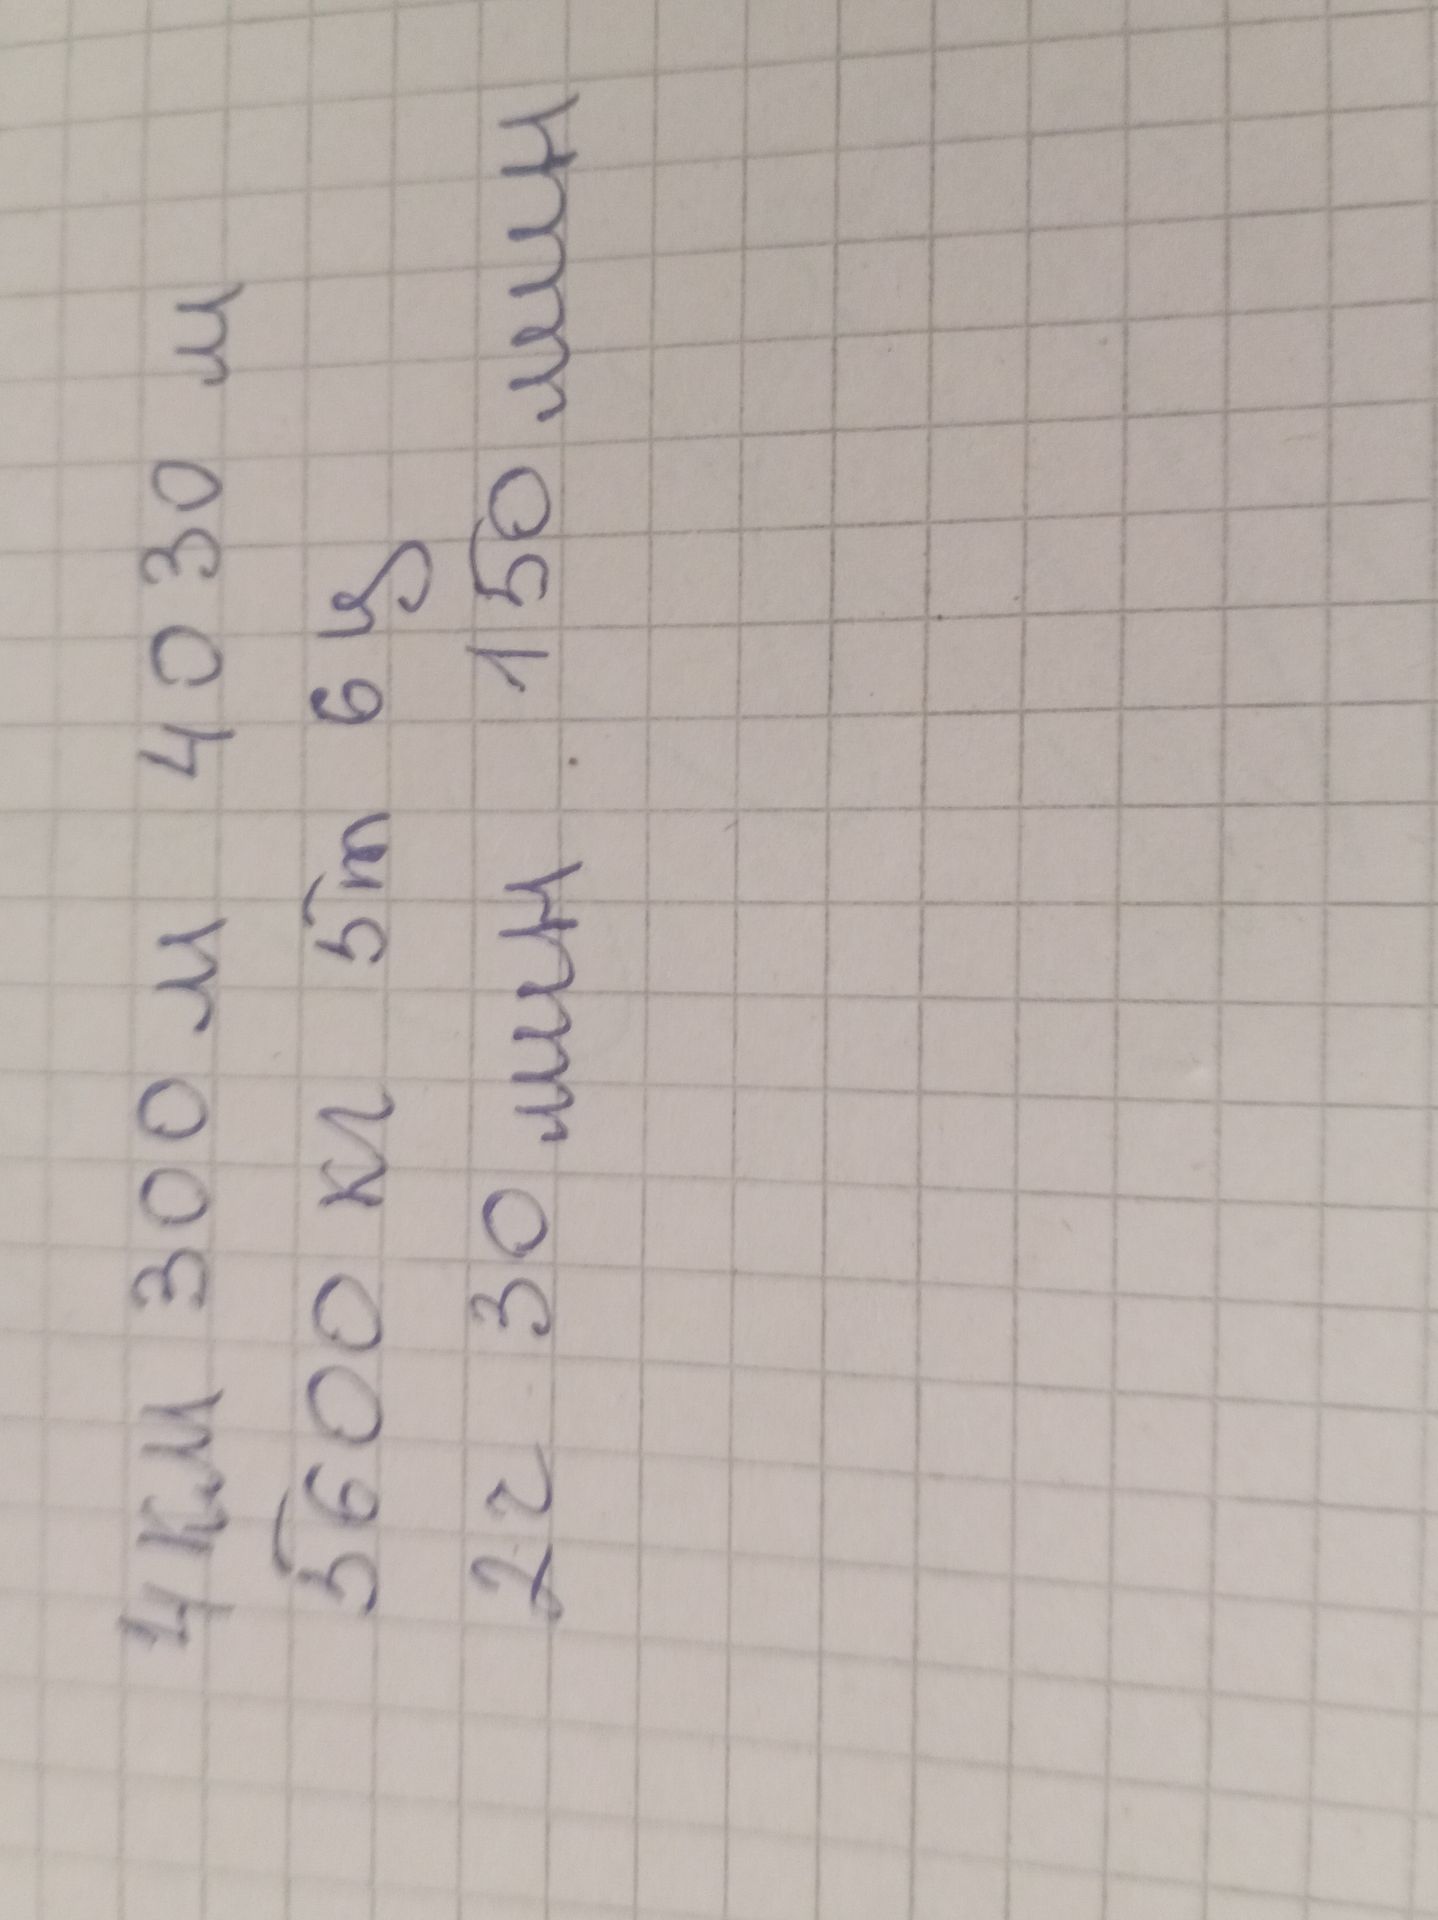 4 км 300 м 4030 м
5600 кг 5т 6 ц
2г 30 мин 150 мин